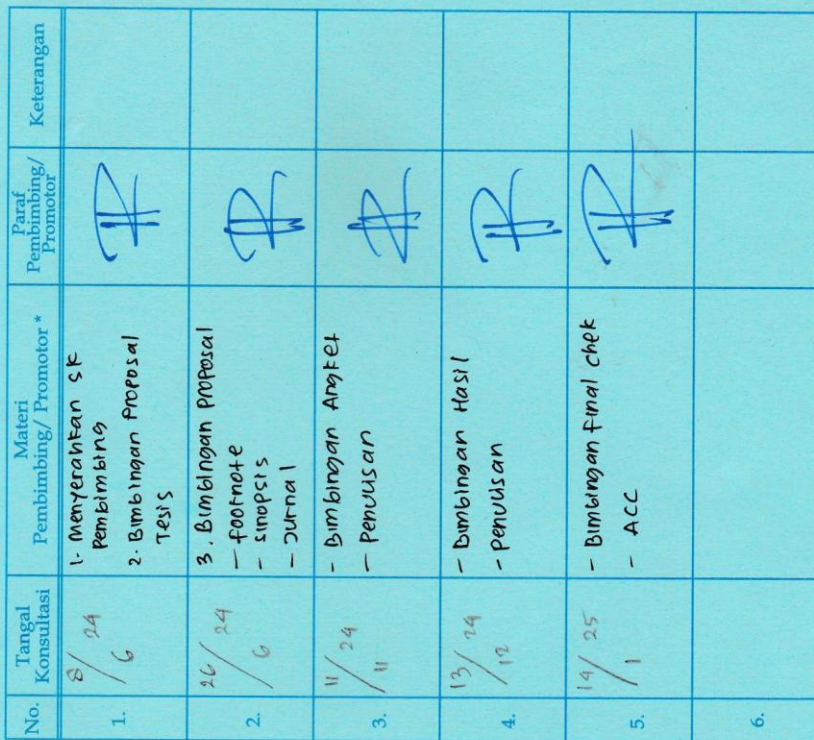 No.
Tangal
Konsultasi
Materi
Pembimbing/ Promotor *
Paraf
Pembimbing/
Promotor
Keterangan
1.
8/6 24
1. Menyerahkan SK
Pembimbing
2. Bimbingan Proposal
Tesis
2.
26/6 24
3. Bimbingan Proposal
- Footnote
- sinopsis
- Jurnal
3.
11/11 24
- Bimbingan Angket
- Penulisan
4.
13/12 24
- Bimbingan Hasil
- Penulisan
5.
14/1 25
- Bimbingan Final chek
- ACC
6.